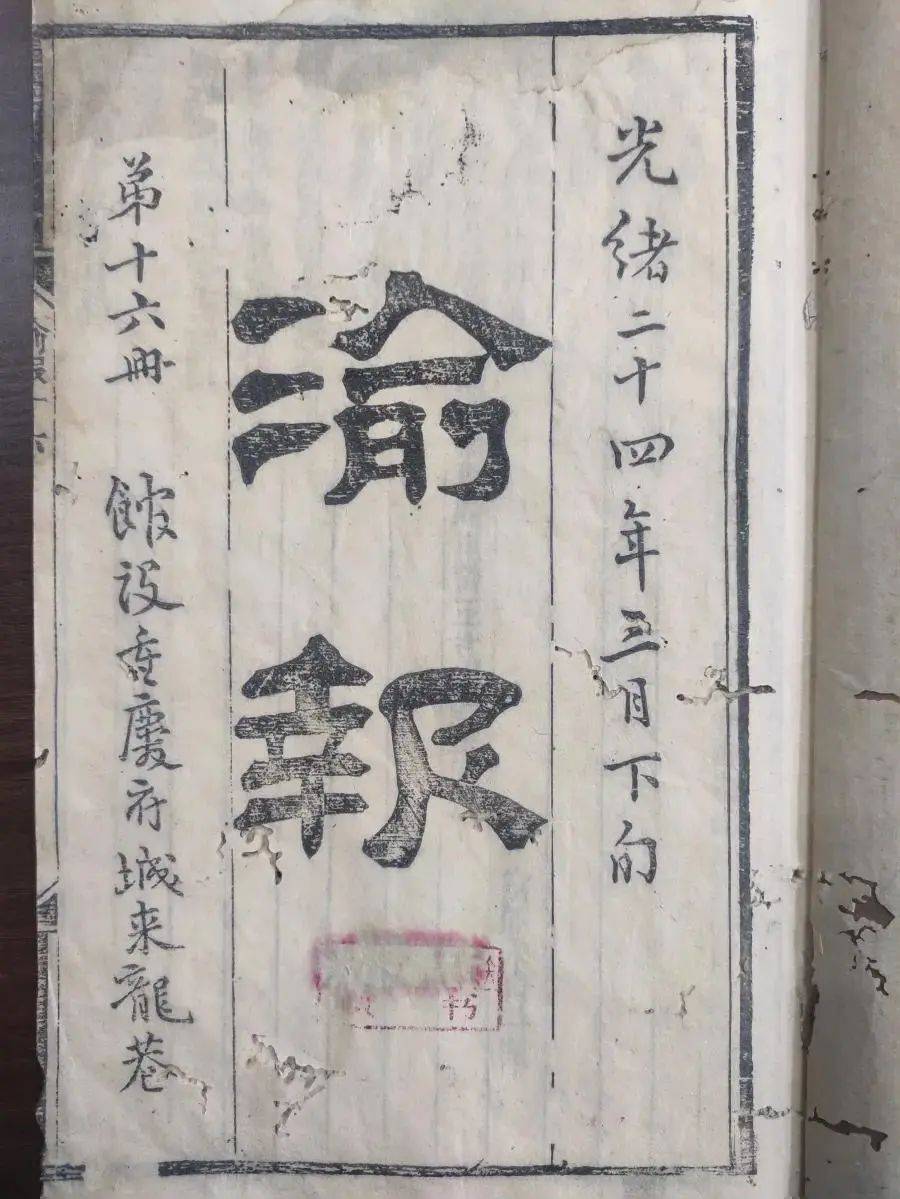 光緒二十四年三月下旬
渝報
第十六冊 館設重慶府城来龍巷